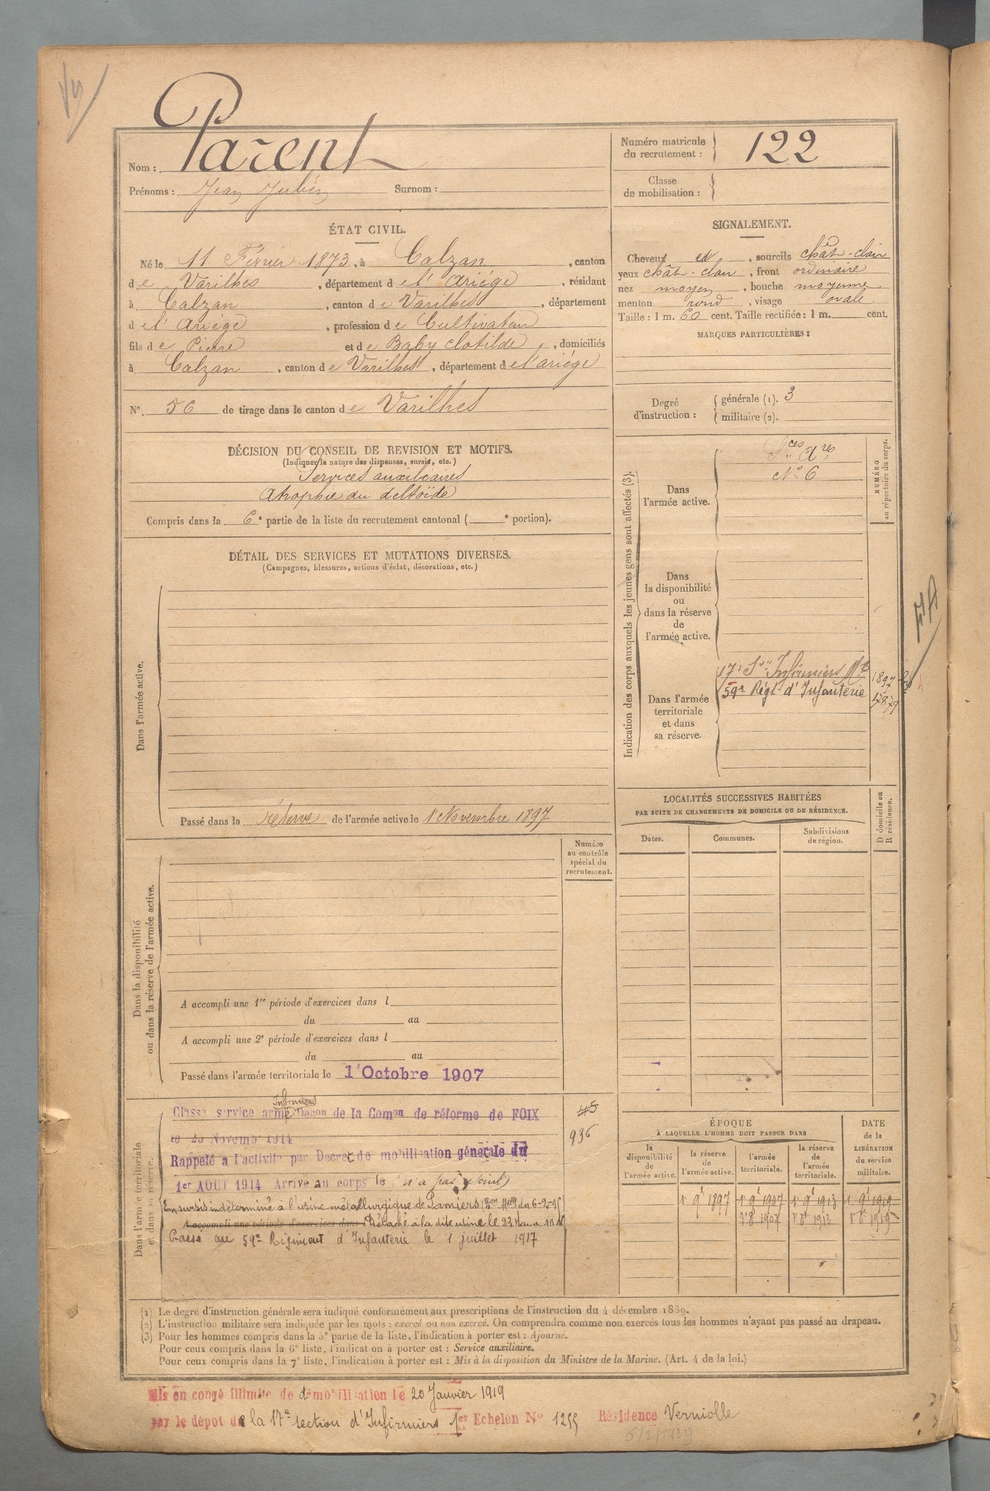 Parent
Nom :
Prénoms : Jean Julien Surnom :
Numéro matricule du recrutement : 122
Classe de mobilisation :
ÉTAT CIVIL.
Né le 11 Février 1873, à Calzan, canton
de Varilhes, département de l'Ariège, résidant
à Calzan, canton de Varilhes, département
de l'Ariège, profession de Cultivateur
fils de Pierre et de Baby Clotilde, domiciliés
à Calzan, canton de Varilhes, département de l'ariège
N° 56 de tirage dans le canton de Varilhes
SIGNALEMENT.
Cheveux et, sourcils chât-clair
yeux chât-clair, front ordinaire
nez moyen, bouche moyenne
menton rond, visage ovale
Taille : 1 m. 60 cent. Taille rectifiée : 1 m. cent.
MARQUES PARTICULIÈRES :
Degré d'instruction : générale (1). 3
militaire (2).
DÉCISION DU CONSEIL DE REVISION ET MOTIFS.
(Indiquer la nature des dispenses, sursis, etc.)
Services auxiliaires
Atrophie du deltoïde
Compris dans la 6e partie de la liste du recrutement cantonal ( e portion).
DÉTAIL DES SERVICES ET MUTATIONS DIVERSES.
(Campagnes, blessures, actions d'éclat, décorations, etc.)
Dans l'armée active.
Passé dans la réserve de l'armée active le 1 Novembre 1897
Indication des corps auxquels les jeunes gens sont affectés (3).
NUMÉRO au répertoire du corps.
Dans l'armée active.
Sces Ares
N° 6
Dans la disponibilité ou dans la réserve de l'armée active.
Dans l'armée territoriale et dans sa réserve.
17e Son Infirmiers
59e Régt d'Infanterie
LOCALITÉS SUCCESSIVES HABITÉES
PAR SUITE DE CHANGEMENTS DE DOMICILE OU DE RÉSIDENCE.
Dates. Communes. Subdivisions de région.
D domicile ou R résidence.
Numéro au contrôle spécial du recrutement.
Dans la disponibilité ou dans la réserve de l'armée active.
A accompli une 1re période d'exercices dans l
du au
A accompli une 2e période d'exercices dans l
du au
Passé dans l'armée territoriale le 1 Octobre 1907
Dans l'armée territoriale et dans sa réserve.
Classé service armé Décon de la Comon de réforme de FOIX
le 25 Novemb 1914
Rappelé à l'activité par Décret de mobilisation générale du
1er AOUT 1914 Arrivé au corps le (n'a pas rejoint)
En sursis indéterminé à l'usine métallurgique de Pamiers
A accompli une période d'exercices dans Détaché à la dite usine le
Passé au 59e Régiment d'Infanterie le 1 juillet 1917
936
ÉPOQUE
À LAQUELLE L'HOMME DOIT PASSER DANS
la disponibilité de l'armée active.
la réserve de l'armée active.
l'armée territoriale.
la réserve de l'armée territoriale.
DATE de la LIBÉRATION du service militaire.
1 9 1897 1 9 1907 1 9 1913 1 9 1919
1 8 1907 1 8 1913 1 8 1919
(1) Le degré d'instruction générale sera indiqué conformément aux prescriptions de l'instruction du 4 décembre 1889.
(2) L'instruction militaire sera indiquée par les mots : exercé ou non exercé. On comprendra comme non exercés tous les hommes n'ayant pas passé au drapeau.
(3) Pour les hommes compris dans la 5e partie de la liste, l'indication à porter est : Ajourné.
Pour ceux compris dans la 6e liste, l'indication à porter est : Service auxiliaire.
Pour ceux compris dans la 7e liste, l'indication à porter est : Mis à la disposition du Ministre de la Marine. (Art. 4 de la loi.)
Mis en congé illimité de démobilisation le 20 Janvier 1919
par le dépot de la 17e section d'Infirmiers 1er Echelon N° 1255 Résidence Verniolle